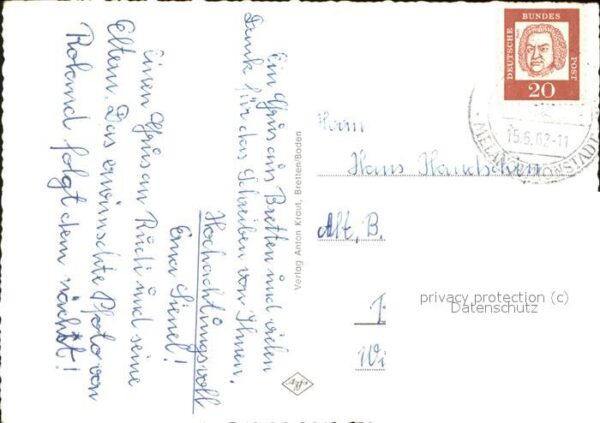 Ein Gruß aus Bretten und vielen
Dank für das Schreiben von Ihnen.
Hochachtungsvoll
Erna Siegel!
Einen Gruß an Rudi und seine
Eltern. Das erwünschte Photo von
Roland folgt dem nächst!
Verlag Anton Kraut, Bretten/Baden
DEUTSCHE
BUNDES
POST
20
15.6.62-11
MELANCHTHONSTADT
Herrn
Hans
Alt, B.
Wi
privacy protection (c)
Datenschutz